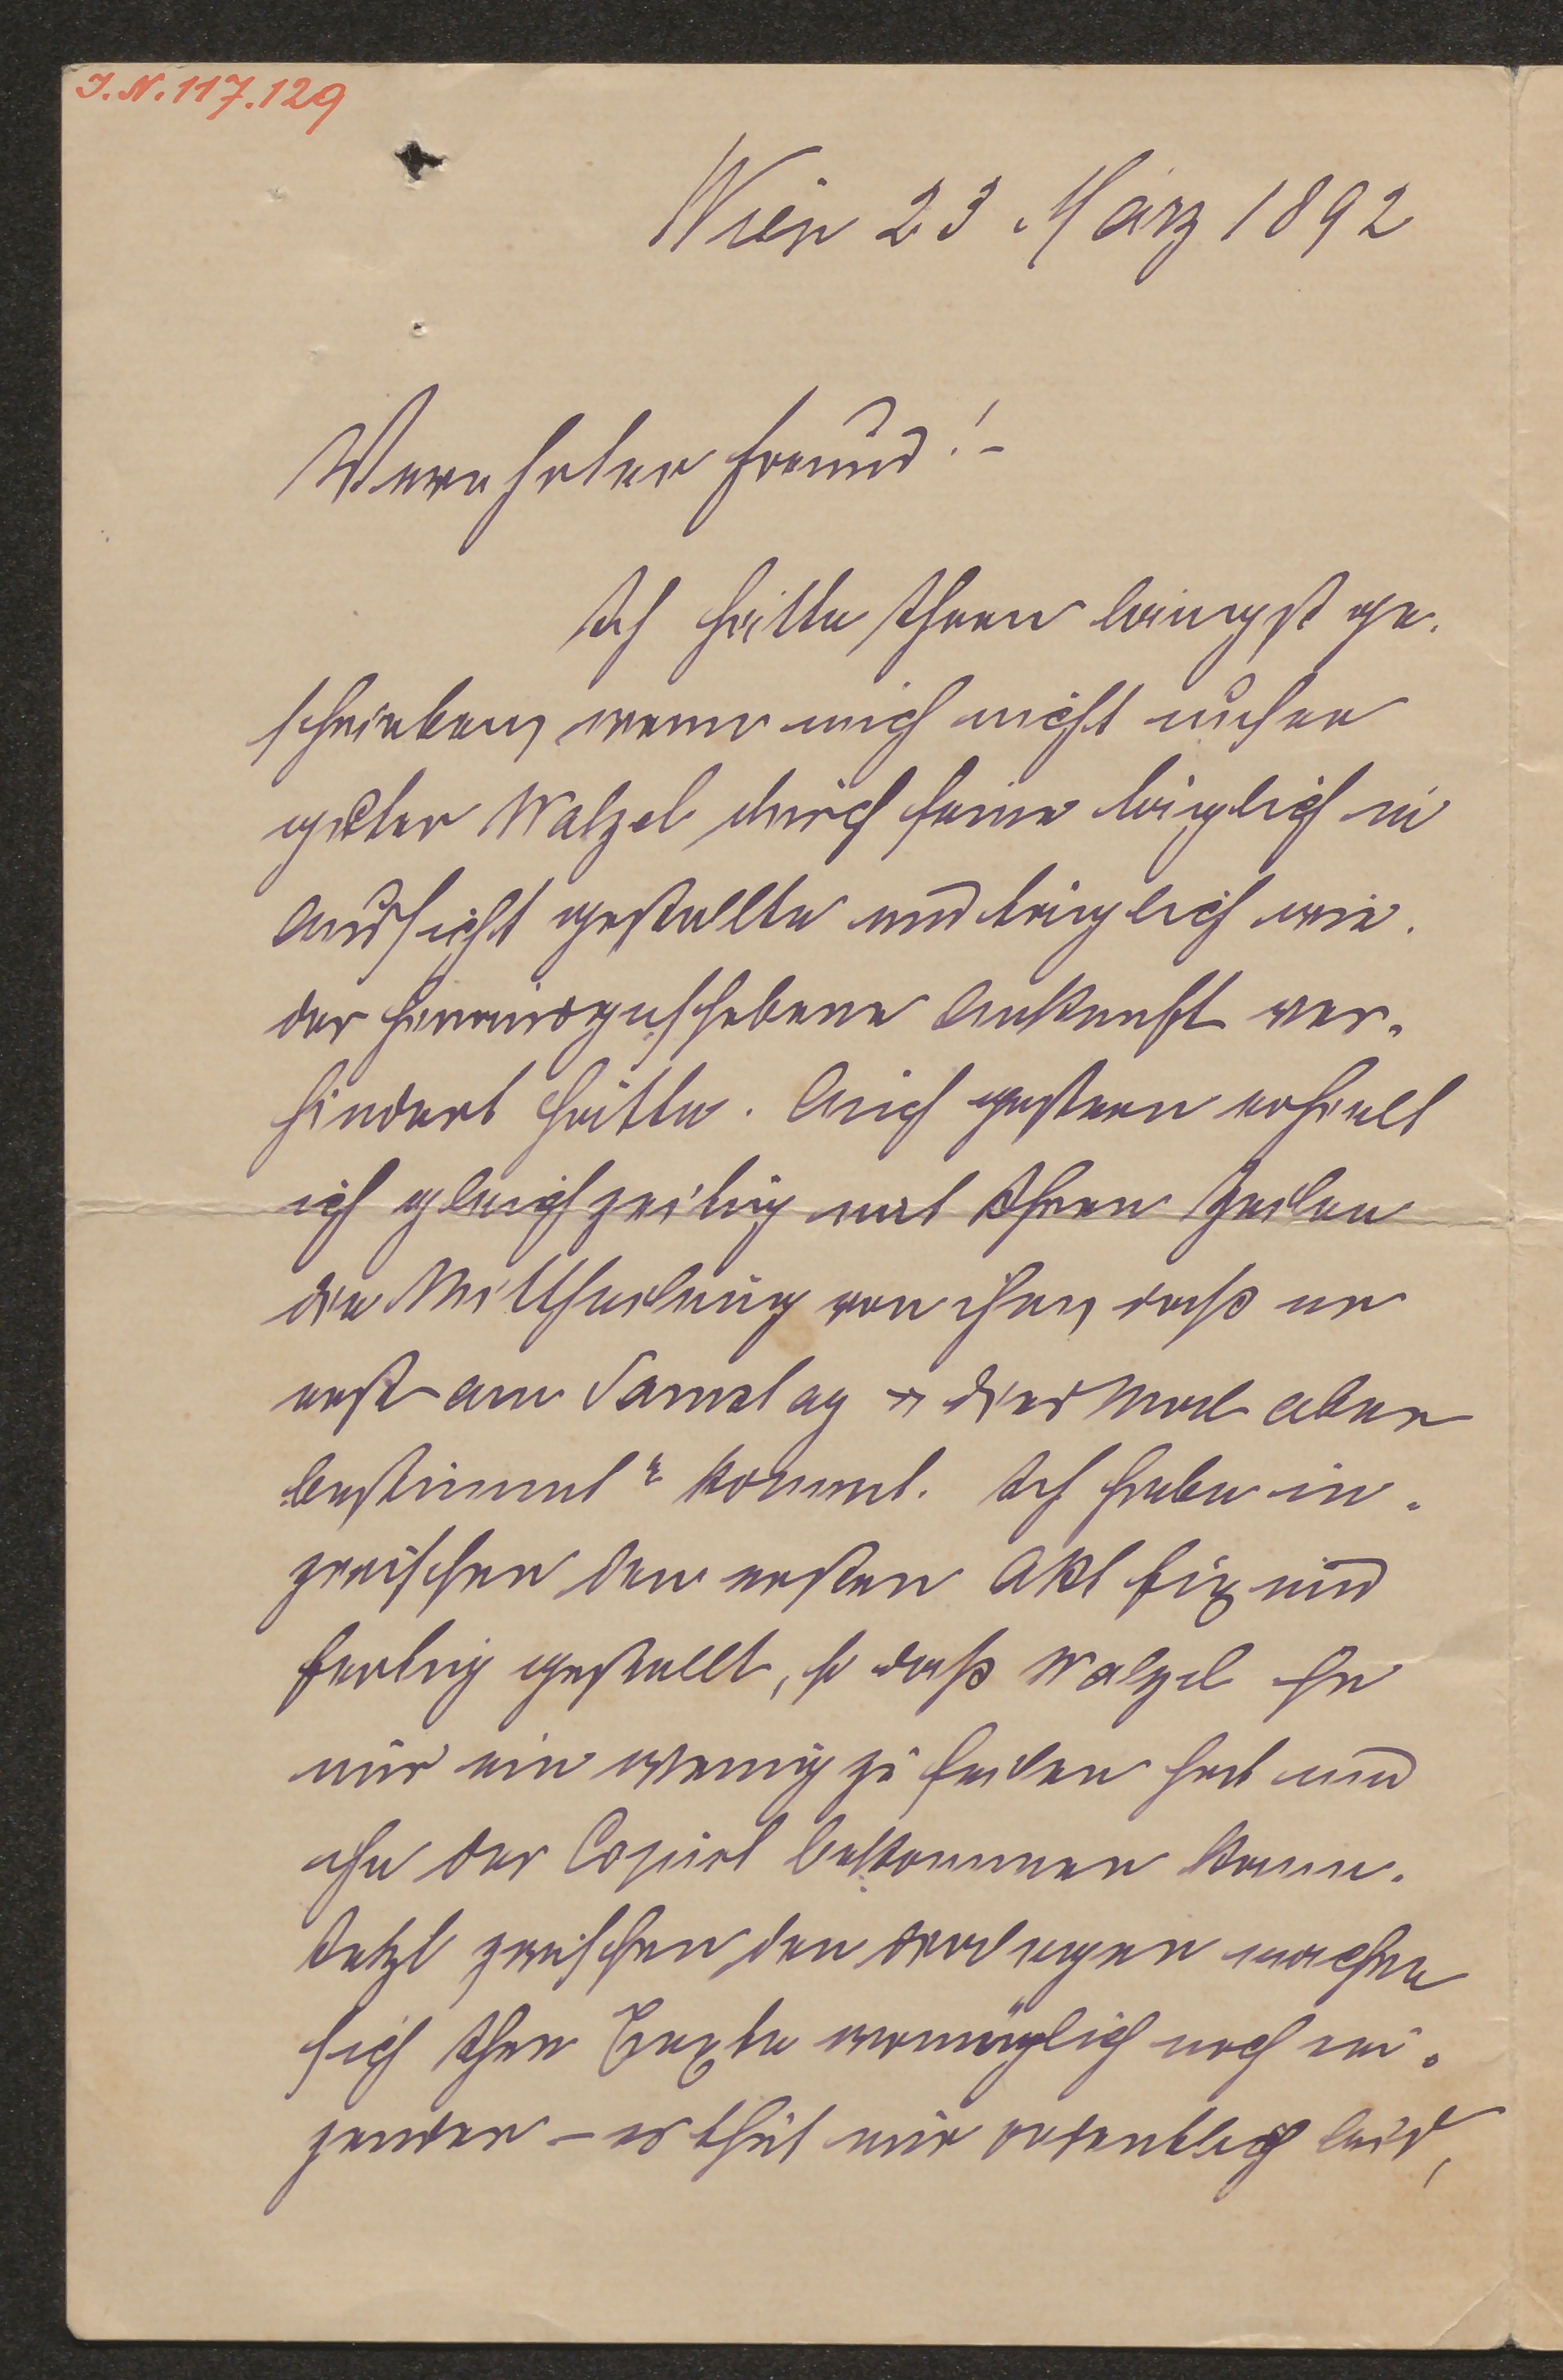 I.N. 117.129
Wien 23 März 1892
Verehrter Freund! –
Ich hätte Ihnen längst ge-
schrieben, wenn mich nicht unser
guter Walzel durch seine täglich in
Aussicht gestellte und täglich wie-
der hinausgeschobene Ankunft ver-
hindert hätte. Auch gestern erhielt
ich gleichzeitig mit Ihren Zeilen
die Mittheilung von ihm, daß er
erst am Samstag „diesmal aber
bestimmt“ kommt. Ich habe in-
zwischen den ersten Akt fix und
fertig gestellt, so daß Walzel
nur ein wenig zu feilen hat und
ihn der Copist bekommen kann.
Jetzt zwischen den Dialogen machen
sich Ihre Texte womöglich noch rei-
zender – es thut mir ordentlich leid,